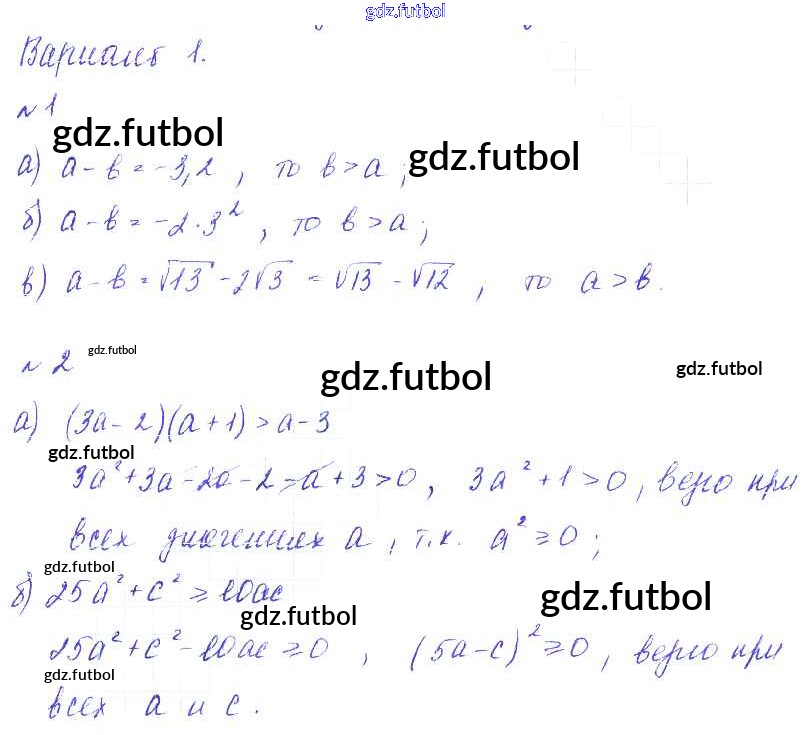 gdz.futbol
Вариант 1.
№ 1
gdz.futbol
gdz.futbol
а) a - b = -3,2 , то b > a ;
б) a - b = -2·3² , то b > a ;
в) a - b = √13 - 2√3 = √13 - √12 , то a > b.
№ 2
gdz.futbol
gdz.futbol
gdz.futbol
а) (3a - 2)(a + 1) > a - 3
gdz.futbol
3a² + 3a - 2a - 2 - a + 3 > 0 , 3a² + 1 > 0 , верно при
всех значениях a , т.к. a² ≥ 0 ;
gdz.futbol
б) 25a² + c² ≥ 10ac
gdz.futbol
gdz.futbol
25a² + c² - 10ac ≥ 0 , (5a - c)² ≥ 0 , верно при
gdz.futbol
всех a и c .